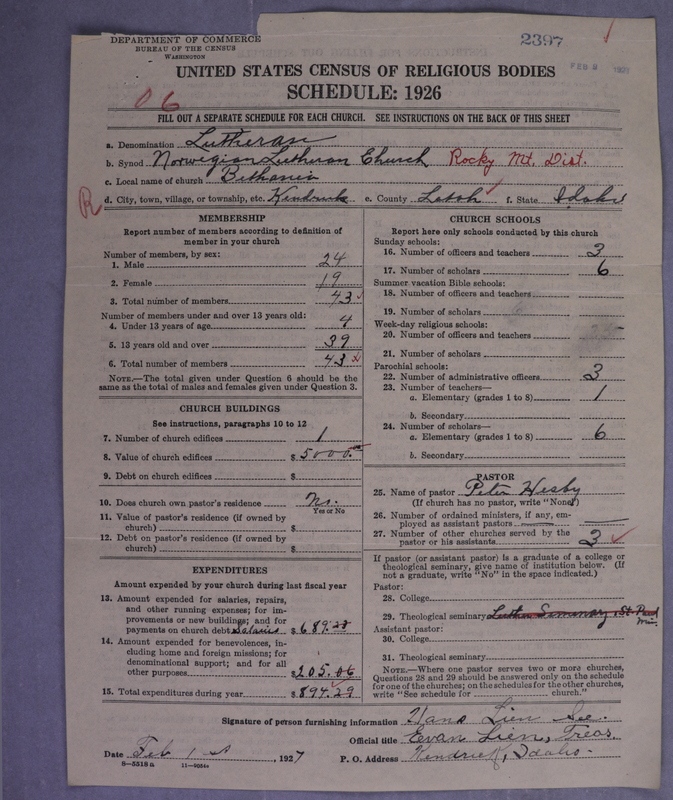 DEPARTMENT OF COMMERCE
BUREAU OF THE CENSUS
WASHINGTON
2397
FEB 9 1927
UNITED STATES CENSUS OF RELIGIOUS BODIES
SCHEDULE: 1926
06
FILL OUT A SEPARATE SCHEDULE FOR EACH CHURCH. SEE INSTRUCTIONS ON THE BACK OF THIS SHEET
a. Denomination Lutheran
b. Synod Norwegian Lutheran Church Rocky Mt. Dist.
c. Local name of church Bethania
R
d. City, town, village, or township, etc. Kendrick e. County Latah f. State Idaho
MEMBERSHIP
Report number of members according to definition of
member in your church
Number of members, by sex:
1. Male 24
2. Female 19
3. Total number of members 43
Number of members under and over 13 years old:
4. Under 13 years of age 4
5. 13 years old and over 39
6. Total number of members 43
NOTE.—The total given under Question 6 should be the
same as the total of males and females given under Question 3.
CHURCH BUILDINGS
See instructions, paragraphs 10 to 12
7. Number of church edifices 1
8. Value of church edifices $5000
9. Debt on church edifices $
10. Does church own pastor's residence No.
Yes or No
11. Value of pastor's residence (if owned by
church) $
12. Debt on pastor's residence (if owned by
church) $
EXPENDITURES
Amount expended by your church during last fiscal year
13. Amount expended for salaries, repairs,
and other running expenses; for im-
provements or new buildings; and for
payments on church debt Salaries $689.23
14. Amount expended for benevolences, in-
cluding home and foreign missions; for
denominational support; and for all
other purposes $205.06
15. Total expenditures during year $894.29
CHURCH SCHOOLS
Report here only schools conducted by this church
Sunday schools:
16. Number of officers and teachers 3
17. Number of scholars 6
Summer vacation Bible schools:
18. Number of officers and teachers
19. Number of scholars
Week-day religious schools:
20. Number of officers and teachers
21. Number of scholars
Parochial schools:
22. Number of administrative officers 3
23. Number of teachers—
a. Elementary (grades 1 to 8) 1
b. Secondary
24. Number of scholars—
a. Elementary (grades 1 to 8) 6
b. Secondary
PASTOR
25. Name of pastor Peter Hesby
(If church has no pastor, write "None")
26. Number of ordained ministers, if any, em-
ployed as assistant pastors
27. Number of other churches served by the
pastor or his assistants 3
If pastor (or assistant pastor) is a graduate of a college or
theological seminary, give name of institution below. (If
not a graduate, write "No" in the space indicated.)
Pastor:
28. College
29. Theological seminary Luther Seminary, St. Paul
Min.
Assistant pastor:
30. College
31. Theological seminary
NOTE.—Where one pastor serves two or more churches,
Questions 28 and 29 should be answered only on the schedule
for one of the churches; on the schedules for the other churches,
write "See schedule for church."
Signature of person furnishing information Hans Lien Sec.
Official title Evan Lien, Treas.
Date Feb 1st, 1927 P. O. Address Kendrick, Idaho.
8—5318a